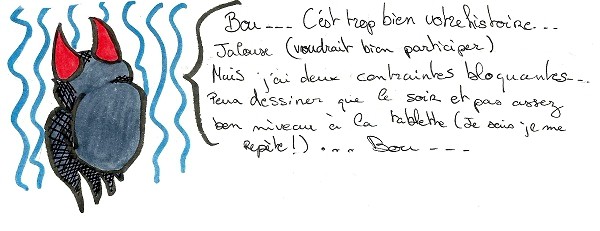 Bou --- C'est trop bien votre histoire...
Jalouse (voudrait bien participer)
Mais j'ai deux contraintes bloquantes...
Peux dessiner que le soir et pas assez
bon niveau à la tablette (Je sais je me
repète!) ... Bou ---